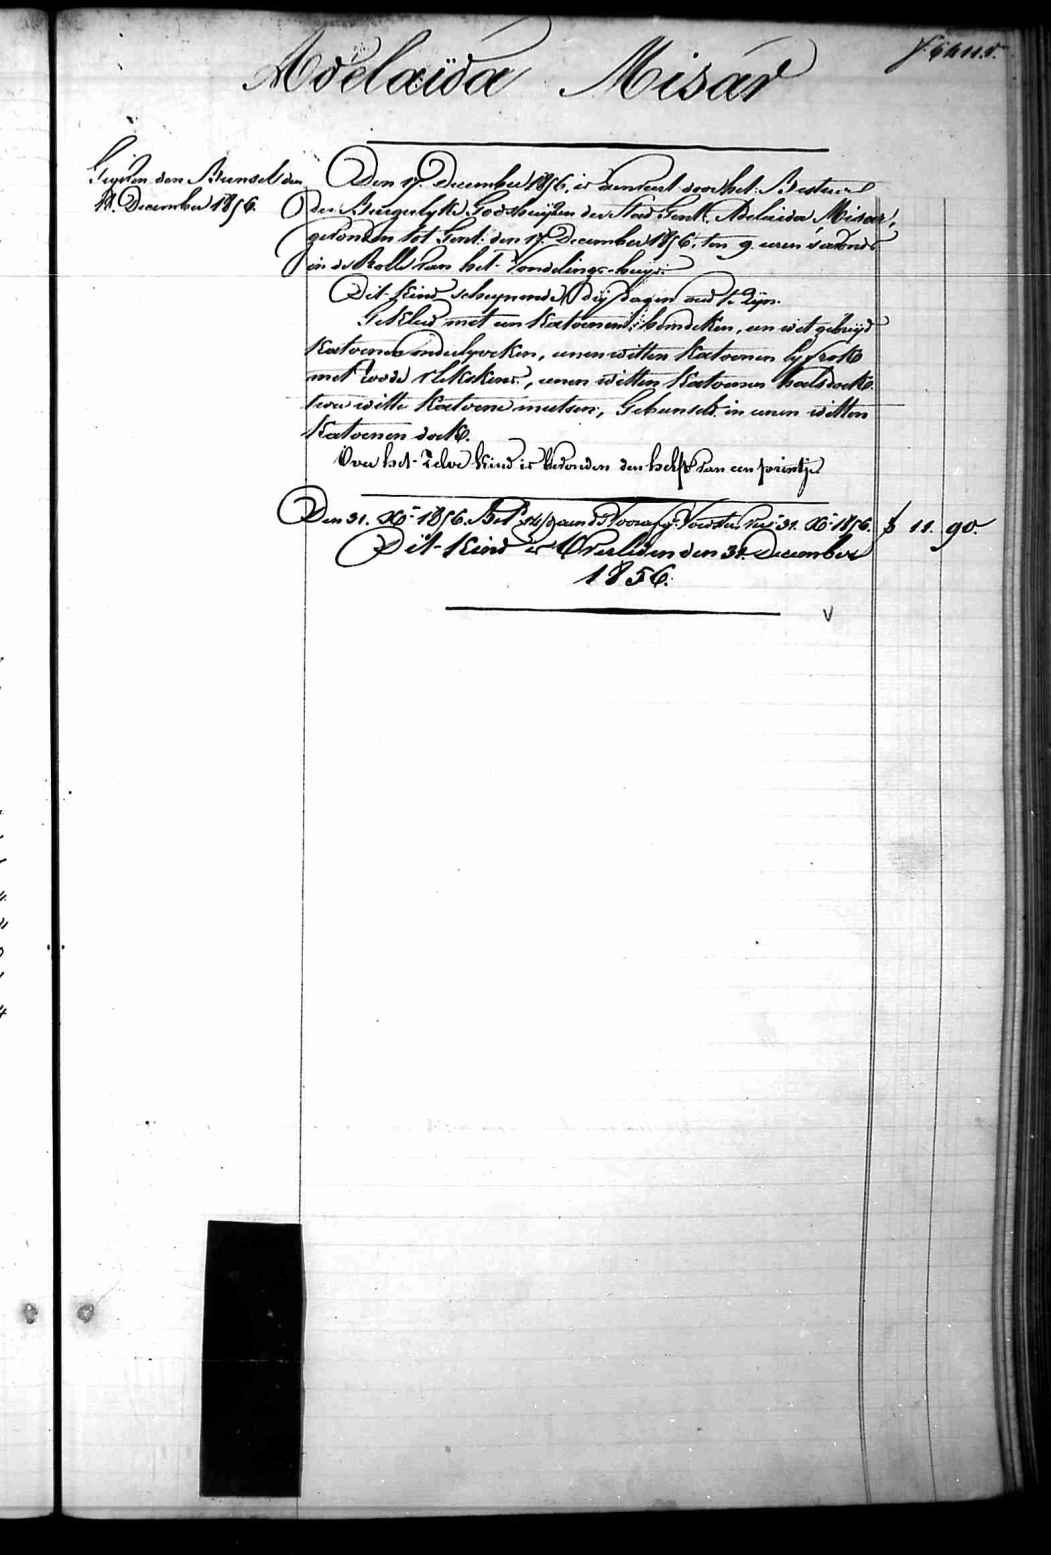 Adelaïda Misar
Gegeven den Bunsel den
18. December 1856.
Den 17. December 1856. is aenveert door het Bestuer
der Burgerlyke Godshuijzen der Stad Gent, Adelaïda Misar,
gevonden tot Gent. den 17. December 1856. ten 9. uren 's avonds
in de Rolle van het Vondelings-huijs.
Dit Kind scheynende drij dagen oud te zijn.
Gekleed met een Katoenen hemdeken, een wit gebreijd
Katoenen onderlyveken, eenen witten Katoenen lyfrok
met roode vlekskens, eenen witten Katoenen halsdoek
twee witte Katoene mutsen, Gebunseld in eenen witten
Katoenen doek.
Over het zelve Kind is bevonden den helft van een prentje
Den 31. Xb. 1856. 31. Xb. 1856. f 11. 90.
Dit Kind is Overleden den 31. December
1856.
V